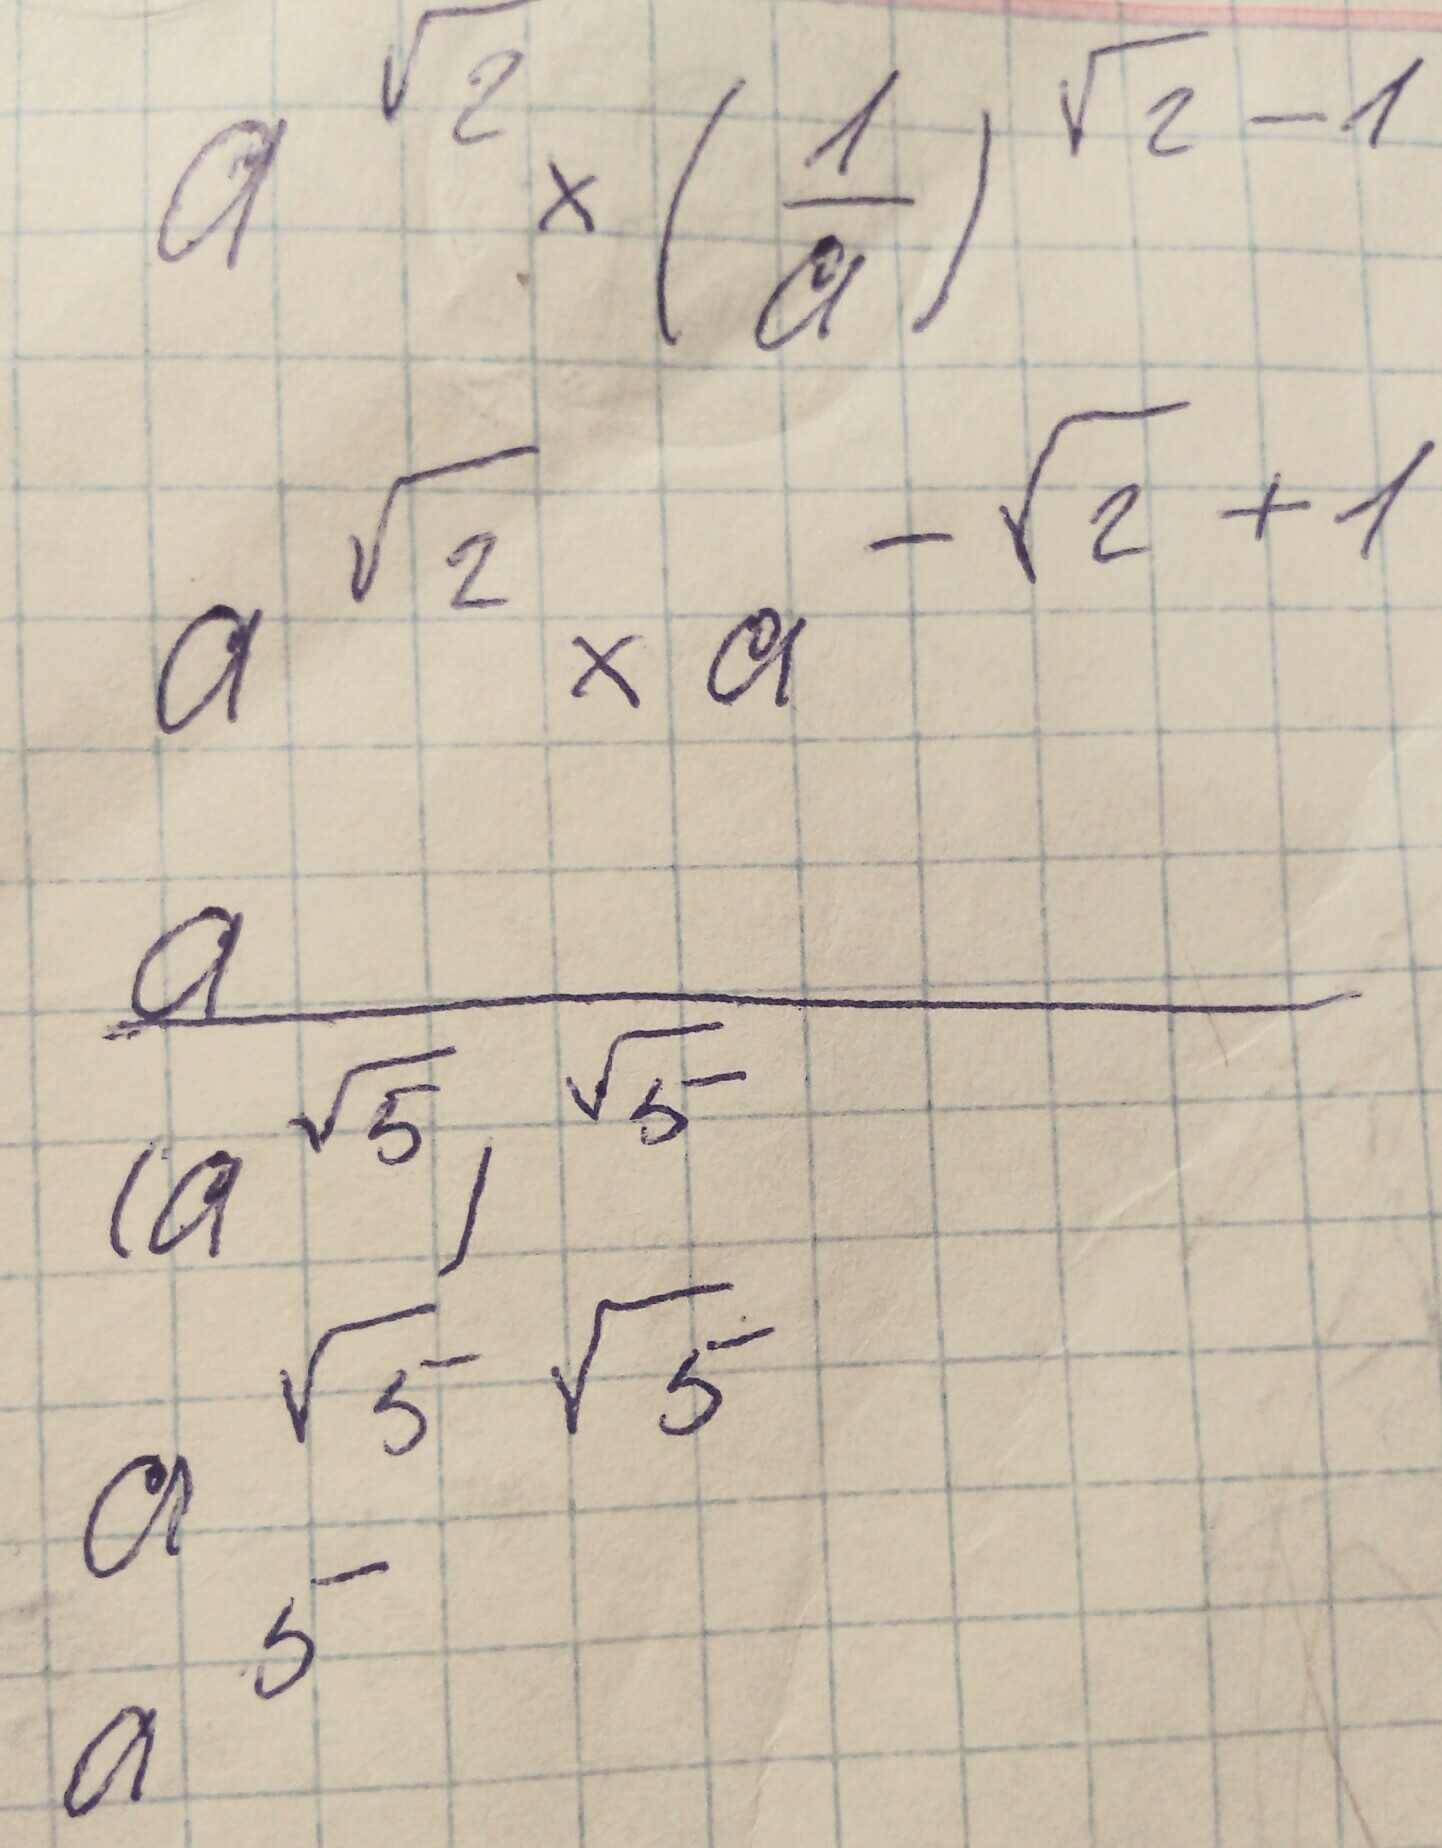 a^√2 × (1/a)^√2 - 1
a^√2 × a^-√2 + 1
a
(a^√5)^√5
a^√5 √5
a^5